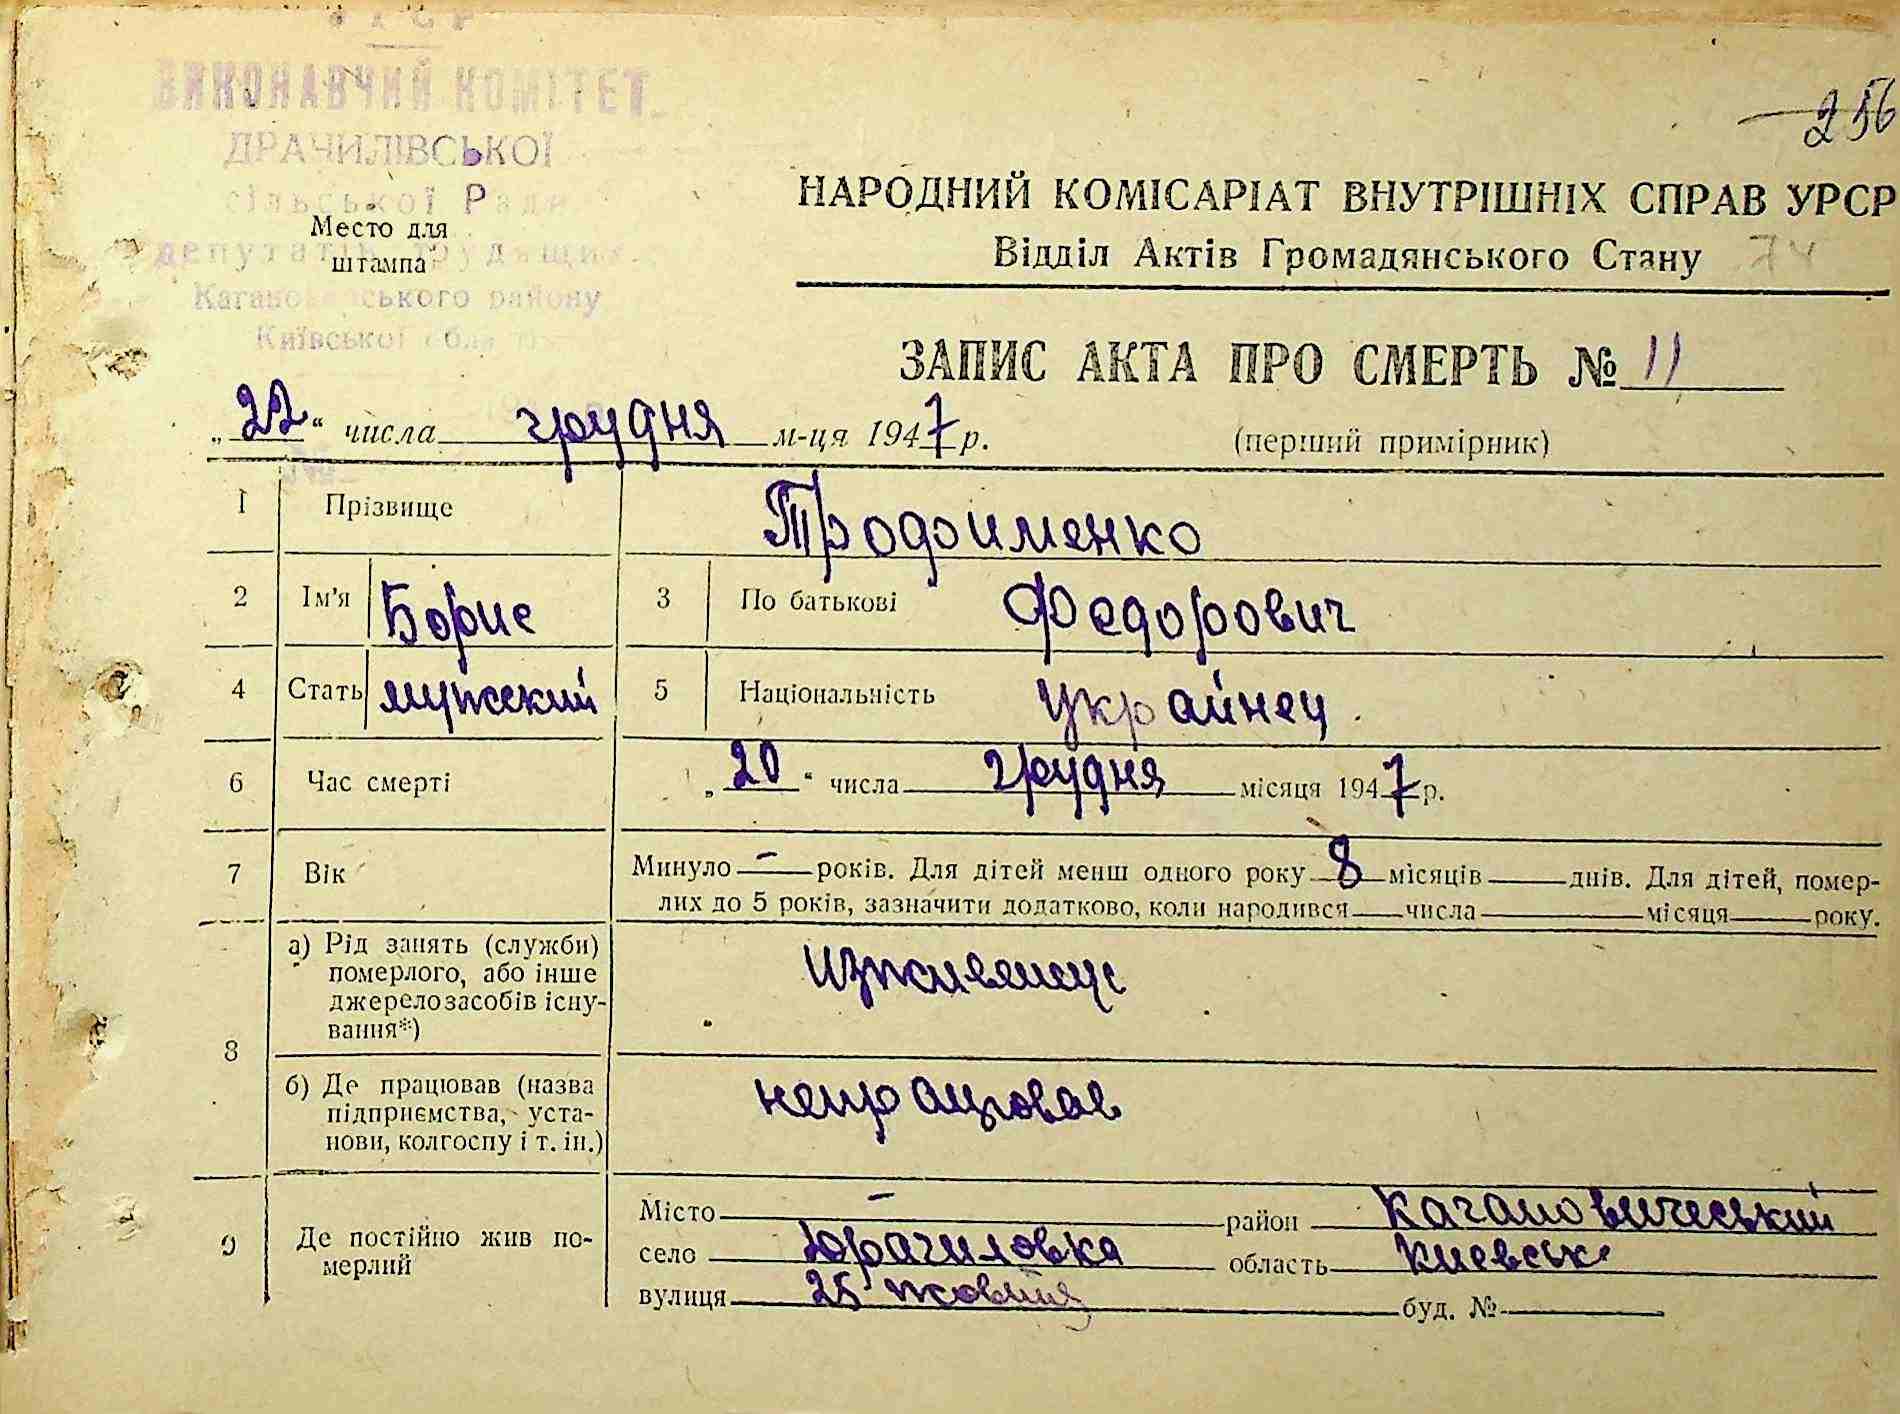 УРСР
ВИКОНАВЧИЙ КОМІТЕТ
ДРАЧИЛІВСЬКОЇ
сільської Ради
депутатів трудящих
Кагановичського району
Київської області
Место для
штампа
256
НАРОДНИЙ КОМІСАРІАТ ВНУТРІШНІХ СПРАВ УРСР
Відділ Актів Громадянського Стану 74
ЗАПИС АКТА ПРО СМЕРТЬ № 11
„22“ числа грудня м-ця 1947 р.
(перший примірник)
1 Прізвище Трофименко
2 Ім'я Борис 3 По батькові Федорович
4 Стать мужский 5 Національність украйнец
6 Час смерті „20“ числа грудня місяця 1947 р.
7 Вік Минуло — років. Для дітей менш одного року 8 місяців днів. Для дітей, помер-
лих до 5 років, зазначити додатково, коли народився числа місяця року.
8 а) Рід занять (служби)
померлого, або інше
джерело засобів існу-
вання*)
б) Де працював (назва
підприємства, уста-
нови, колгоспу і т. ін.)
непрацював
9 Де постійно жив по-
мерлий
Місто — район Кагановичеський
село Драчиловка область Киевськ
вулиця 25 жовтня буд. №